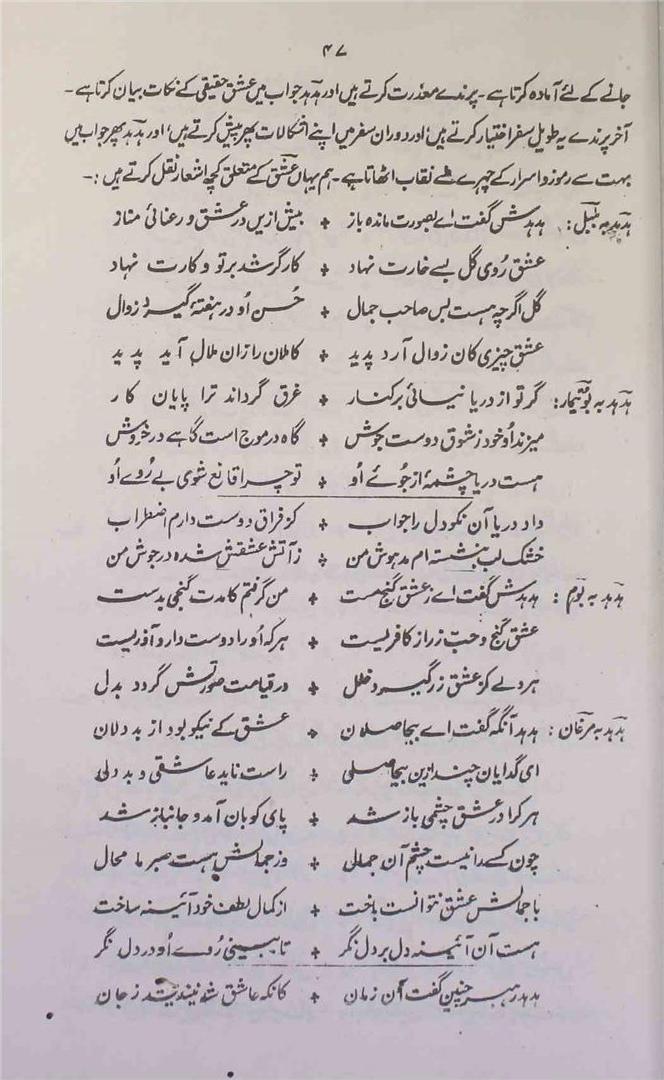 ۴۷
جانے کے لئے آمادہ کرتا ہے۔ پرندے معذرت کرتے ہیں اور ہدہد جواب میں عشق حقیقی کے نکات بیان کرتا ہے۔
آخر پرندے یہ طویل سفر اختیار کرتے ہیں؛ اور دوران سفر میں اپنے اشکالات پھر پیش کرتے ہیں؛ اور ہدہد پھر جواب میں
بہت سے رموز و اسرار کے چہرے سے نقاب اٹھاتا ہے۔ ہم یہاں عشق کے متعلق کچھ اشعار نقل کرتے ہیں :۔
ہدہد بہ بلبل : ہدہدش گفت اے بصورت ماندہ باز + بیش ازیں در عشق و رعنائی مناز
عشق رُوی گل بسے خارت نہاد + کارگر شد بر تو و کارت نہاد
گل اگرچہ ہست بس صاحب جمال + حُسن اُو در ہفتۂ گیرد زوال
عشق چیزی کان زوال آرد پدید + کاملان را زان ملال آید پدید
ہدہد بہ بوتیمار : گر تو از دریا نیائی بر کنار + غرق گرداند ترا پایان کار
میزند اُو خود ز شوق دوست جوش + گاہ در موج است گاہے در خروش
ہست دریا چشمۂ از جُوئے اُو + تو چرا قانع شوی بے رُوے اُو
داد دریا آن نکو دل را جواب + کز فراق دوست دارم اضطراب
خشک لب بنشستہ ام مدہوش من + ز آتش عشقش شدہ در جوش من
ہدہد بہ بوم : ہدہدش گفت اے ز عشق گنج مست + من گرفتم کامدت گنجی بدست
عشق گنج و حبّ زر از کافریست + ہر کہ اُو را دوست دارد آذریست
ہر دلے کز عشق زر گیرد خلل + در قیامت صورتش گردد بدل
ہدہد بہ مرغان : ہدہد آنگہ گفت اے بیحاصلان + عشق کے نیکو بود از بد دلان
ای گدایان چند ازین بیحاصلی + راست ناید عاشقی و بد دلی
ہر کرا در عشق چشمی باز شد + پای کوبان آمد و جانباز شد
چون کسے را نیست چشم آن جمالی + وز جمالش ہست صبر ما محال
با جمالش عشق نتوانست باخت + از کمال لطف خود آئینہ ساخت
ہست آن آئینہ دل بر دل نگر + تا ببینی رُوے اُو در دل نگر
ہدہد رہبر چنین گفت آن زمان + کانکہ عاشق شد نیندیشد ز جان